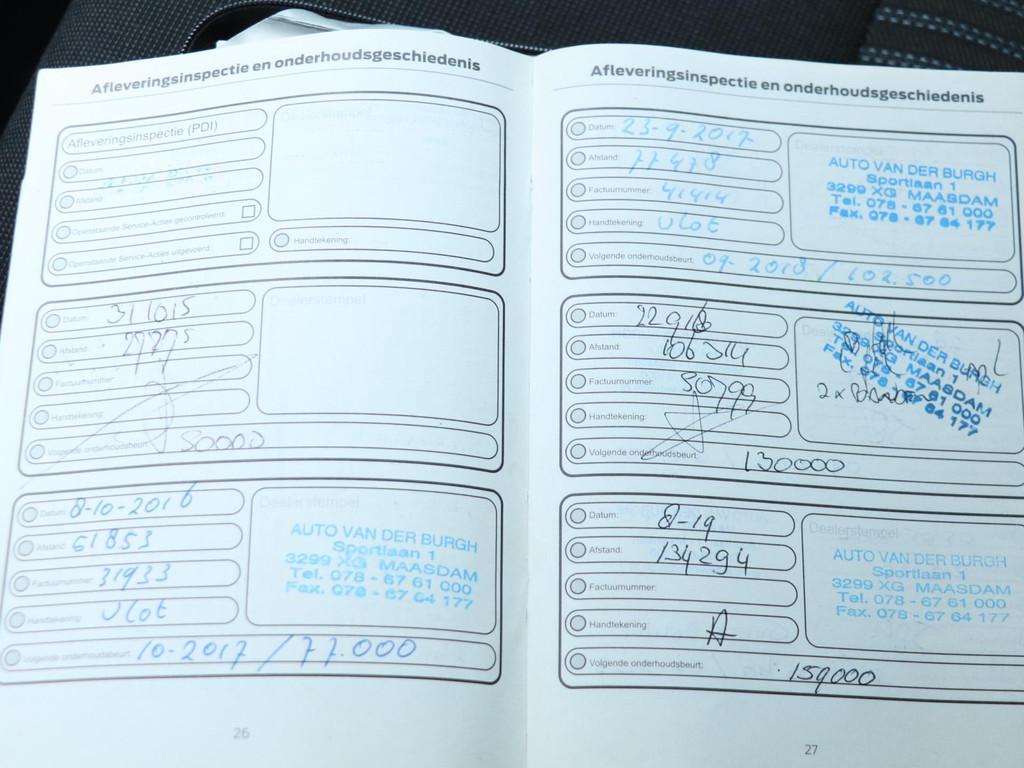 Afleveringsinspectie en onderhoudsgeschiedenis
Afleveringsinspectie (PDI)
Datum:
Afstand:
Openstaande Service-Acties gecontroleerd:
Openstaande Service-Acties uitgevoerd:
Dealerstempel
Handtekening:
Datum: 311015
Afstand: 27775
Factuurnummer:
Handtekening:
Volgende onderhoudsbeurt: 50000
Dealerstempel
Datum: 8-10-2016
Afstand: 51853
Factuurnummer: 31933
Handtekening: Vlot
Volgende onderhoudsbeurt: 10-2017 / 77.000
Dealerstempel
AUTO VAN DER BURGH
Sportlaan 1
3299 XG MAASDAM
Tel. 078 - 67 61 000
Fax. 078 - 67 64 177
26
Afleveringsinspectie en onderhoudsgeschiedenis
Datum: 23-9-2017
Afstand: 77478
Factuurnummer: 41414
Handtekening: Vlot
Volgende onderhoudsbeurt: 09-2018 / 102.500
Dealerstempel
AUTO VAN DER BURGH
Sportlaan 1
3299 XG MAASDAM
Tel. 078 - 67 61 000
Fax. 078 - 67 64 177
Datum: 22918
Afstand: 106314
Factuurnummer: 50799
Handtekening:
Volgende onderhoudsbeurt: 130000
AUTO VAN DER BURGH
Sportlaan 1
3299 XG MAASDAM
Tel. 078 - 67 61 000
Fax. 078 - 67 64 177
2x
Datum: 8-19
Afstand: 134294
Factuurnummer:
Handtekening: A
Volgende onderhoudsbeurt: 159000
Dealerstempel
AUTO VAN DER BURGH
Sportlaan 1
3299 XG MAASDAM
Tel. 078 - 67 61 000
Fax. 078 - 67 64 177
27